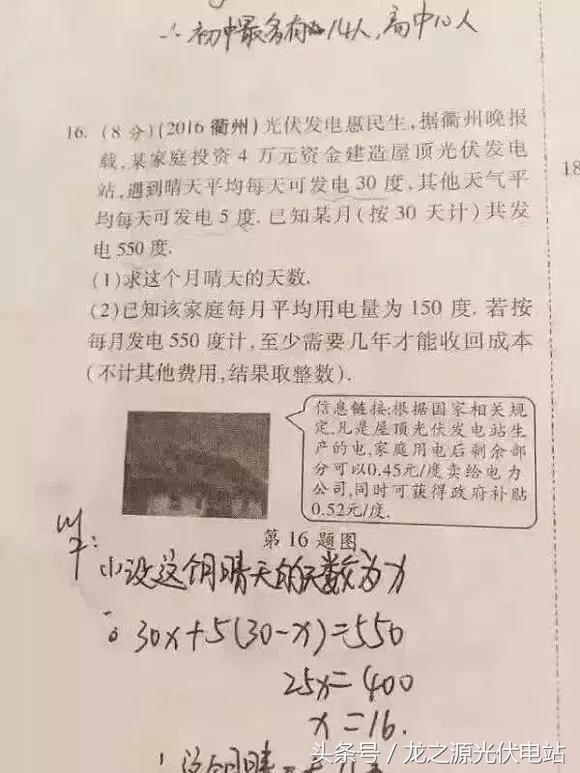 ∴初中最多有14人,高中10人
16. (8分)(2016衢州)光伏发电惠民生,据衢州晚报
载,某家庭投资4万元资金建造屋顶光伏发电
站,遇到晴天平均每天可发电30度,其他天气平
均每天可发电5度.已知某月(按30天计)共发
电550度.
(1)求这个月晴天的天数.
(2)已知该家庭每月平均用电量为150度.若按
每月发电550度计,至少需要几年才能收回成本
(不计其他费用,结果取整数).
信息链接:根据国家相关规
定,凡是屋顶光伏发电站生
产的电,家庭用电后剩余部
分可以0.45元/度卖给电力
公司,同时可获得政府补贴
0.52元/度.
第16题图
设这个月晴天的天数为x
30x+5(30-x)=550
25x=400
x=16.
这个月晴
头条号/龙之源光伏电站
18